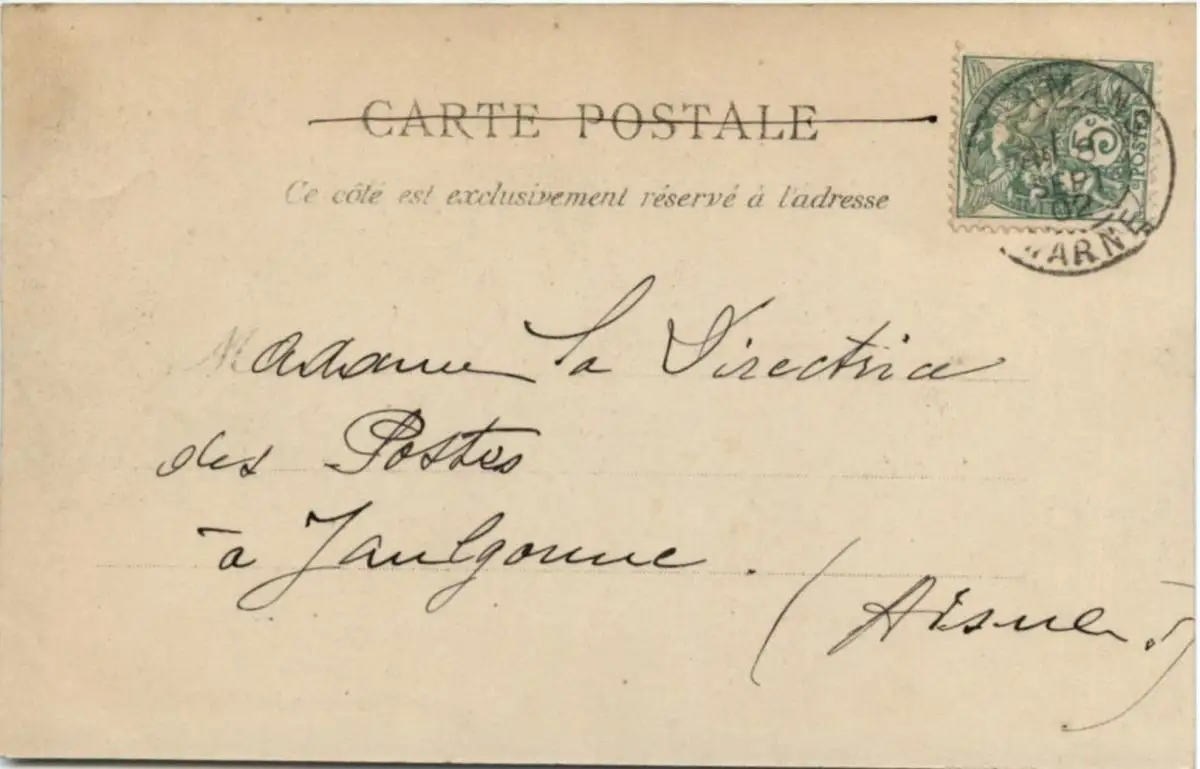 CARTE POSTALE
Ce côté est exclusivement réservé à l'adresse
5c
POSTES
SEPT
02
MARNE
Madame la Directrice
des Postes
à Jaulgonne.
(Aisne.)